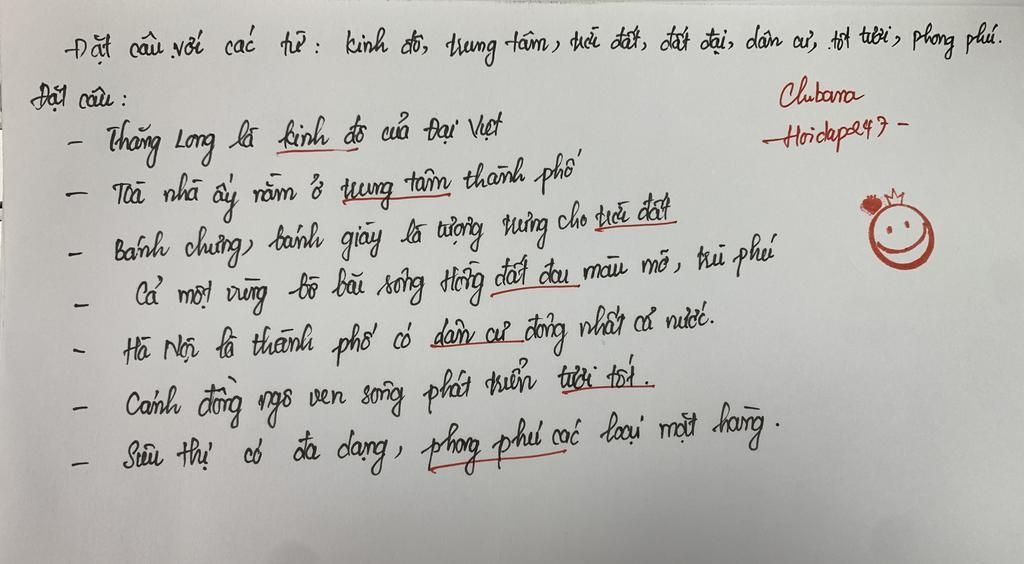 Đặt câu với các từ: kinh đô, trung tâm, trời đất, đất đai, dân cư, tốt tươi, phong phú.
Đặt câu:
Chubana
- Hoidap247 -
- Thăng Long là kinh đô của Đại Việt
- Toà nhà ấy nằm ở trung tâm thành phố
- Bánh chưng, bánh giày là tượng trưng cho trời đất
- Cả một vùng bờ bãi sông Hồng đất đai màu mỡ, trù phú
- Hà Nội là thành phố có dân cư đông nhất cả nước.
- Cánh đồng ngô ven sông phát triển tươi tốt.
- Siêu thị có đa dạng, phong phú các loại mặt hàng.